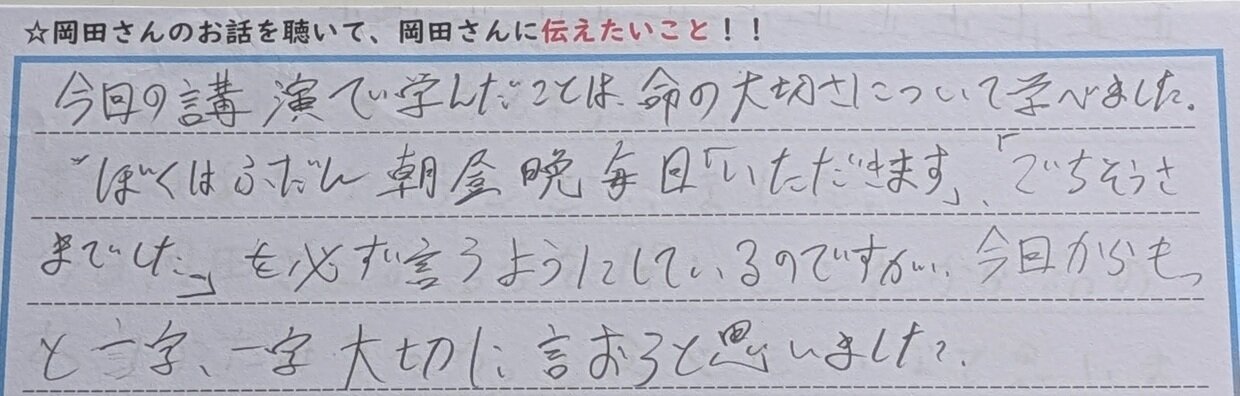 ☆岡田さんのお話を聴いて、岡田さんに伝えたいこと！！
今回の講演で学んだことは、命の大切さについて学べました。
ぼくはふだん朝昼晩毎日「いただきます」、「ごちそうさ
までした」を必ず言うようにしているのですが、今回からもっ
と一字、一字大切に言おうと思いました。